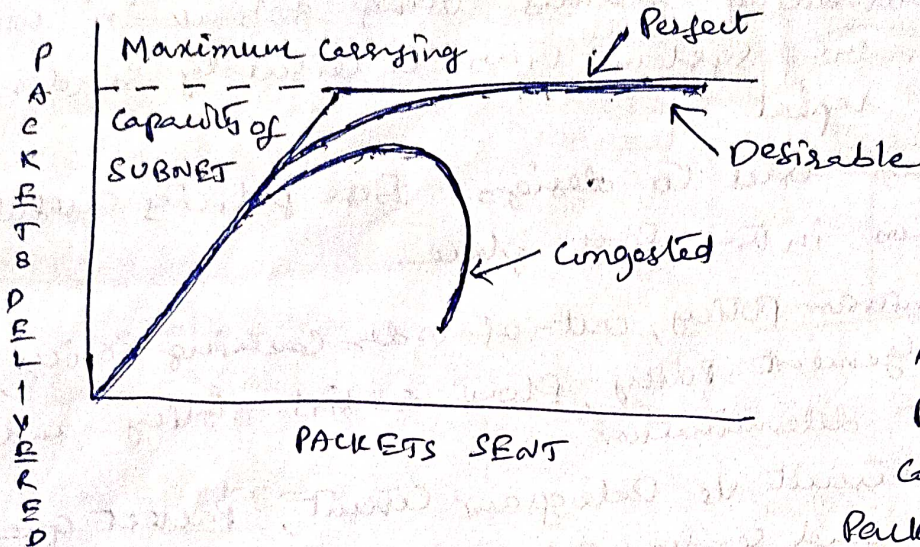 PACKETS DELIVERED
Maximum Carrying
Capacity of
SUBNET
Perfect
Desirable
Congested
PACKETS SENT